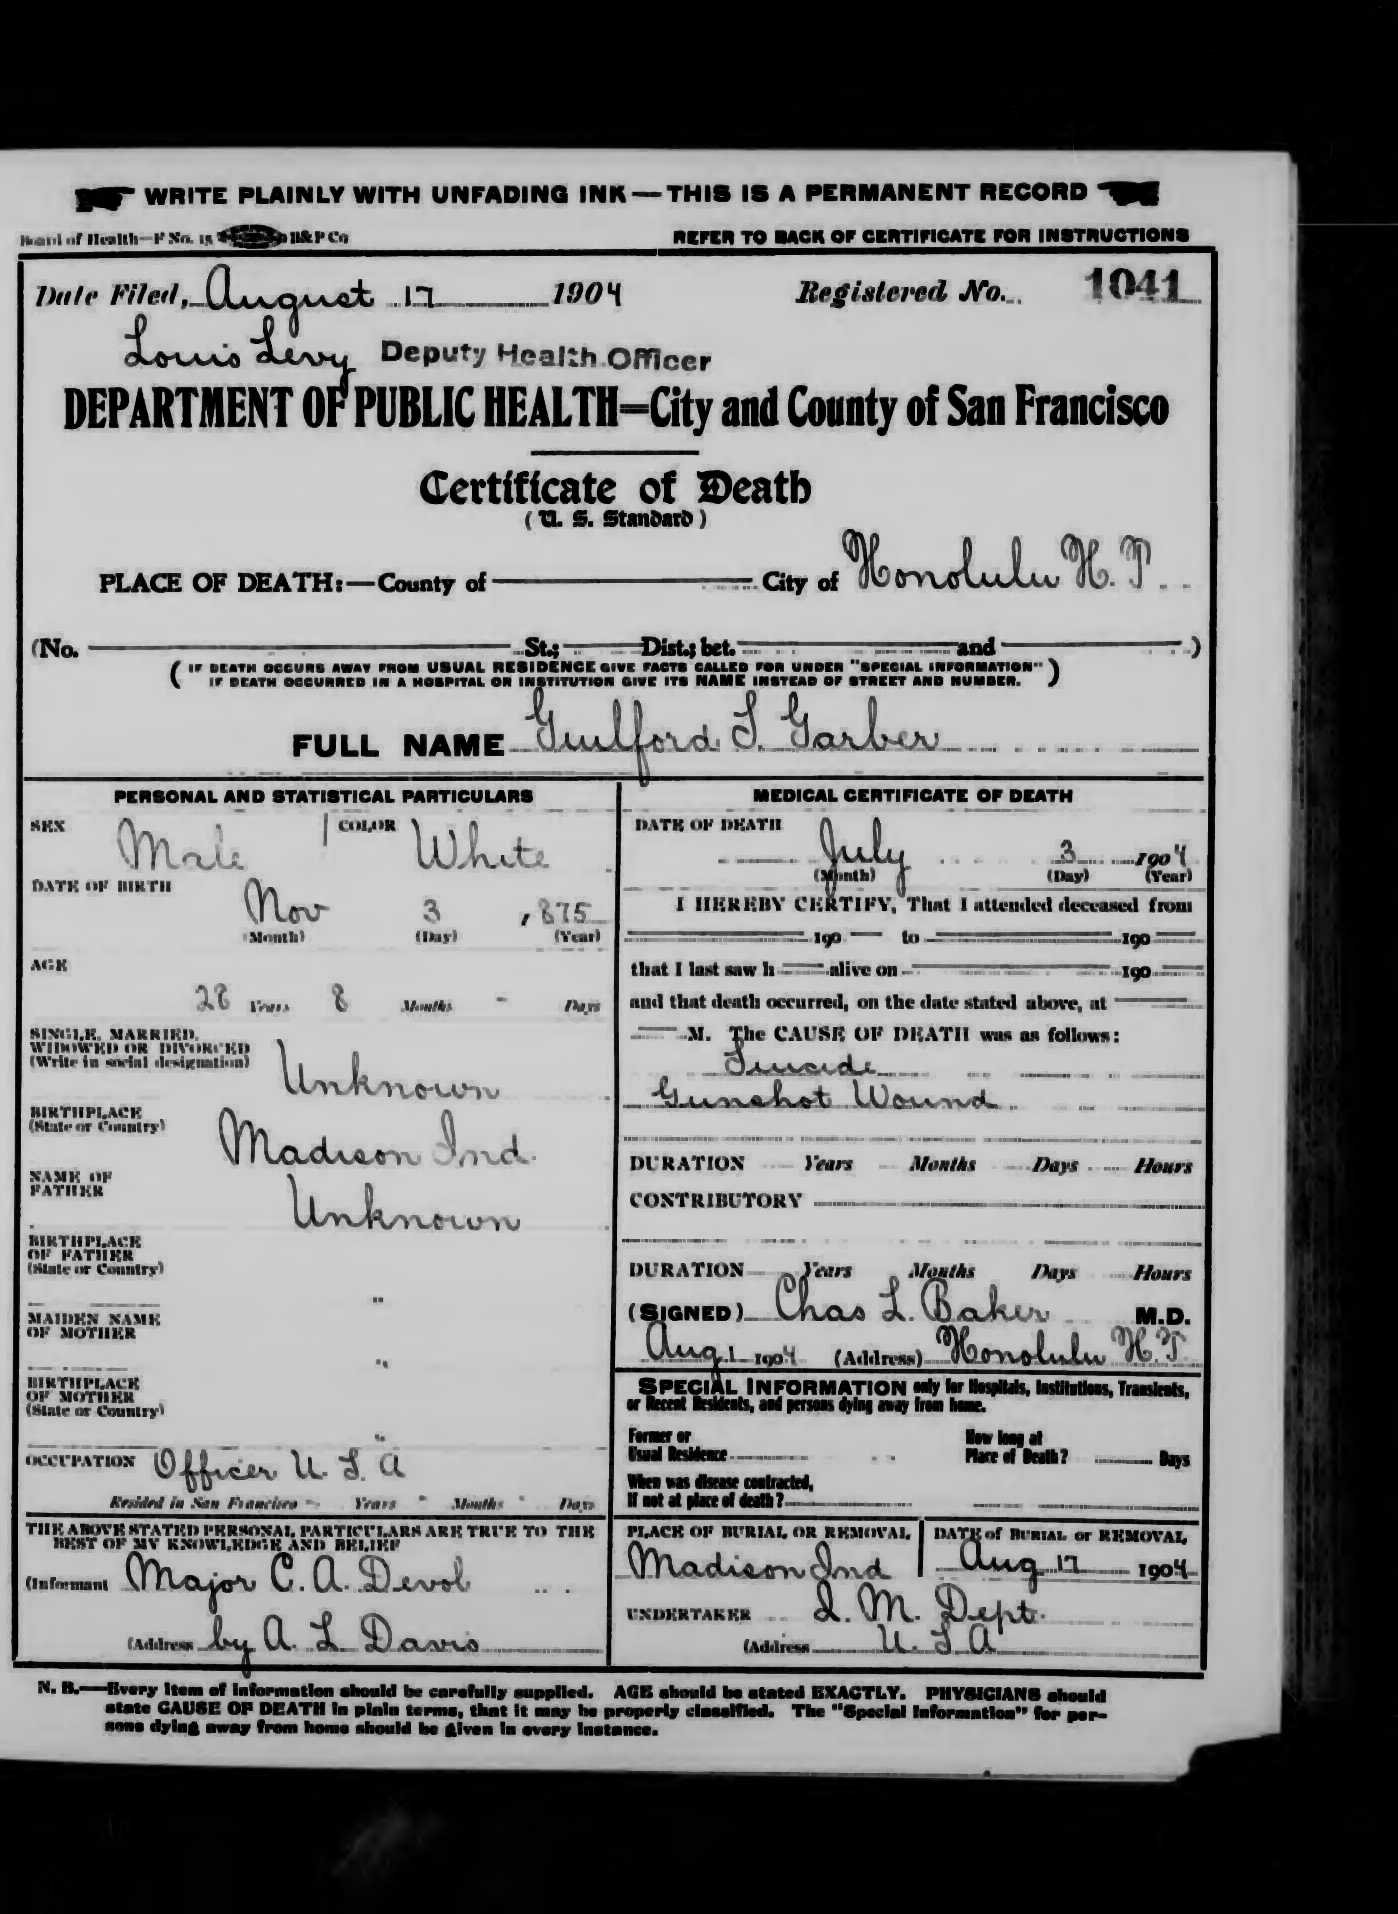 WRITE PLAINLY WITH UNFADING INK—THIS IS A PERMANENT RECORD
Board of Health—F No. 15 H&P Co REFER TO BACK OF CERTIFICATE FOR INSTRUCTIONS
Date Filed, August 17 1904 Registered No. 1041
Louis Levy Deputy Health Officer
DEPARTMENT OF PUBLIC HEALTH=City and County of San Francisco
Certificate of Death
(U. S. Standard)
PLACE OF DEATH:—County of City of Honolulu H. T.
(No. St.; Dist.; bet. and )
(IF DEATH OCCURS AWAY FROM USUAL RESIDENCE GIVE FACTS CALLED FOR UNDER "SPECIAL INFORMATION"
IF DEATH OCCURRED IN A HOSPITAL OR INSTITUTION GIVE ITS NAME INSTEAD OF STREET AND NUMBER.)
FULL NAME Guilford S. Garber
PERSONAL AND STATISTICAL PARTICULARS
SEX Male COLOR White
DATE OF BIRTH
Nov 3 1875
(Month) (Day) (Year)
AGE
28 Years 8 Months - Days
SINGLE, MARRIED,
WIDOWED OR DIVORCED
(Write in social designation) Unknown
BIRTHPLACE
(State or Country) Madison Ind.
NAME OF
FATHER Unknown
BIRTHPLACE
OF FATHER
(State or Country)
"
MAIDEN NAME
OF MOTHER
"
BIRTHPLACE
OF MOTHER
(State or Country)
"
OCCUPATION Officer U. S. A
Resided in San Francisco - Years " Months " Days
THE ABOVE STATED PERSONAL PARTICULARS ARE TRUE TO THE
BEST OF MY KNOWLEDGE AND BELIEF
(Informant Major C. A. Devol
(Address by A. L Davis
MEDICAL CERTIFICATE OF DEATH
DATE OF DEATH
July 3 1904
(Month) (Day) (Year)
I HEREBY CERTIFY, That I attended deceased from
190 to 190
that I last saw h alive on 190
and that death occurred, on the date stated above, at
M. The CAUSE OF DEATH was as follows:
Suicide
Gunshot Wound
DURATION Years Months Days Hours
CONTRIBUTORY
DURATION Years Months Days Hours
(SIGNED) Chas L. Baker M.D.
Aug 1 1904 (Address) Honolulu H. T.
SPECIAL INFORMATION only for Hospitals, Institutions, Transients,
or Recent Residents, and persons dying away from home.
Former or
Usual Residence
How long at
Place of Death? Days
When was disease contracted,
If not at place of death?
PLACE OF BURIAL OR REMOVAL
Madison Ind
DATE of BURIAL or REMOVAL
Aug 17 1904
UNDERTAKER Q. M. Dept.
(Address U. S A
N. B.—Every item of information should be carefully supplied. AGE should be stated EXACTLY. PHYSICIANS should
state CAUSE OF DEATH in plain terms, that it may be properly classified. The "Special Information" for per-
sons dying away from home should be given in every instance.